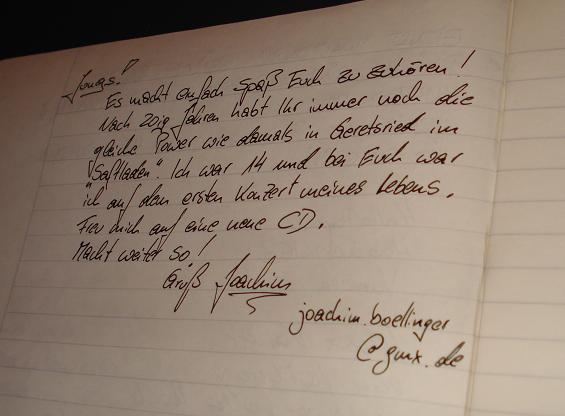 Jungs!
Es macht einfach Spaß Euch zu zuhören!
Nach 20ig Jahren habt Ihr immer noch die
gleiche Power wie damals in Geretsried im
"Saftladen". Ich war 14 und bei Euch war
ich auf dem ersten Konzert meines Lebens.
Freu mich auf eine neue CD.
Macht weiter so!
Gruß Joachim
joachim.boellinger
@gmx.de